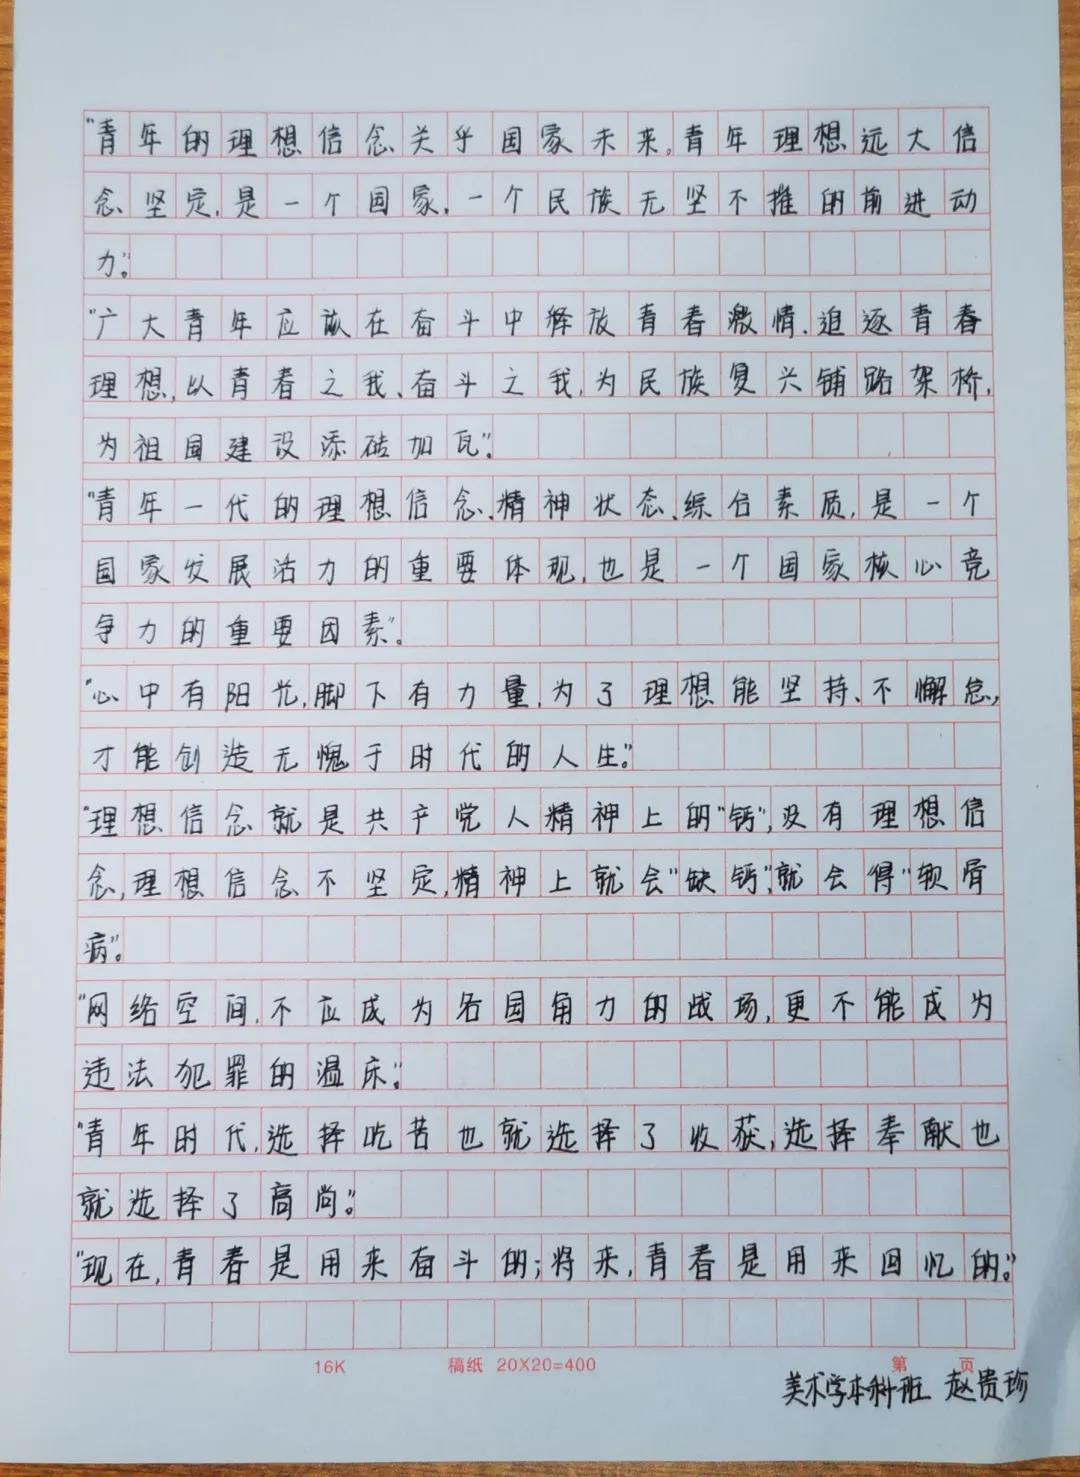 “青年的理想信念关乎国家未来,青年理想远大信
念坚定,是一个国家,一个民族无坚不推的前进动
力”。
“广大青年应该在奋斗中释放青春激情、追逐青春
理想,以青春之我、奋斗之我,为民族复兴铺路架桥,
为祖国建设添砖加瓦”。
“青年一代的理想信念、精神状态、综合素质,是一个
国家发展活力的重要体现,也是一个国家核心竞
争力的重要因素”。
“心中有阳光,脚下有力量,为了理想能坚持、不懈怠,
才能创造无愧于时代的人生”。
“理想信念就是共产党人精神上的“钙”,没有理想信
念,理想信念不坚定,精神上就会“缺钙”,就会得“软骨
病”。
“网络空间,不应成为各国角力的战场,更不能成为
违法犯罪的温床”。
“青年时代,选择吃苦也就选择了收获,选择奉献也
就选择了高尚”。
“现在,青春是用来奋斗的;将来,青春是用来回忆的”。
16K 稿纸 20X20=400 第 页
美术学本科班 赵贵珍